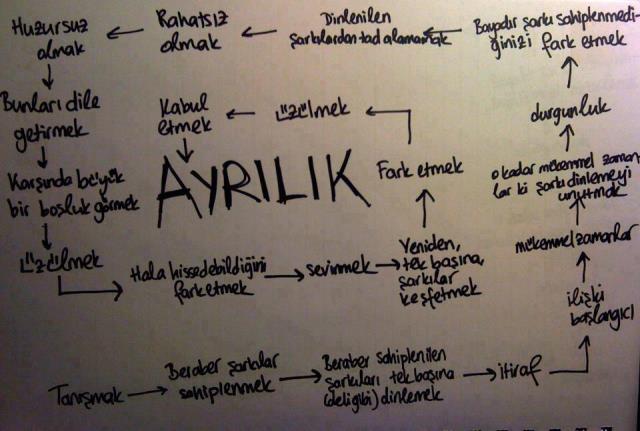 Tanışmak
Beraber şarkılar
sahiplenmek
Beraber sahiplenilen
şarkıları tek başına
(deli gibi) dinlemek
itiraf
ilişki
başlangıcı
mükemmel zamanlar
o kadar mükemmel zaman-
lar ki şarkı dinlemeyi
unutmak
durgunluk
Bayadır şarkı sahiplenmedi-
ğinizi fark etmek
Dinlenilen
şarkılardan tad alamamak
Rahatsız
olmak
Huzursuz
olmak
Bunları dile
getirmek
Karşında büyük
bir boşluk görmek
üzülmek
Hala hissedebildiğini
farketmek
sevinmek
Yeniden,
tek başına,
şarkılar
keşfetmek
Fark etmek
üzülmek
Kabul
etmek
AYRILIK